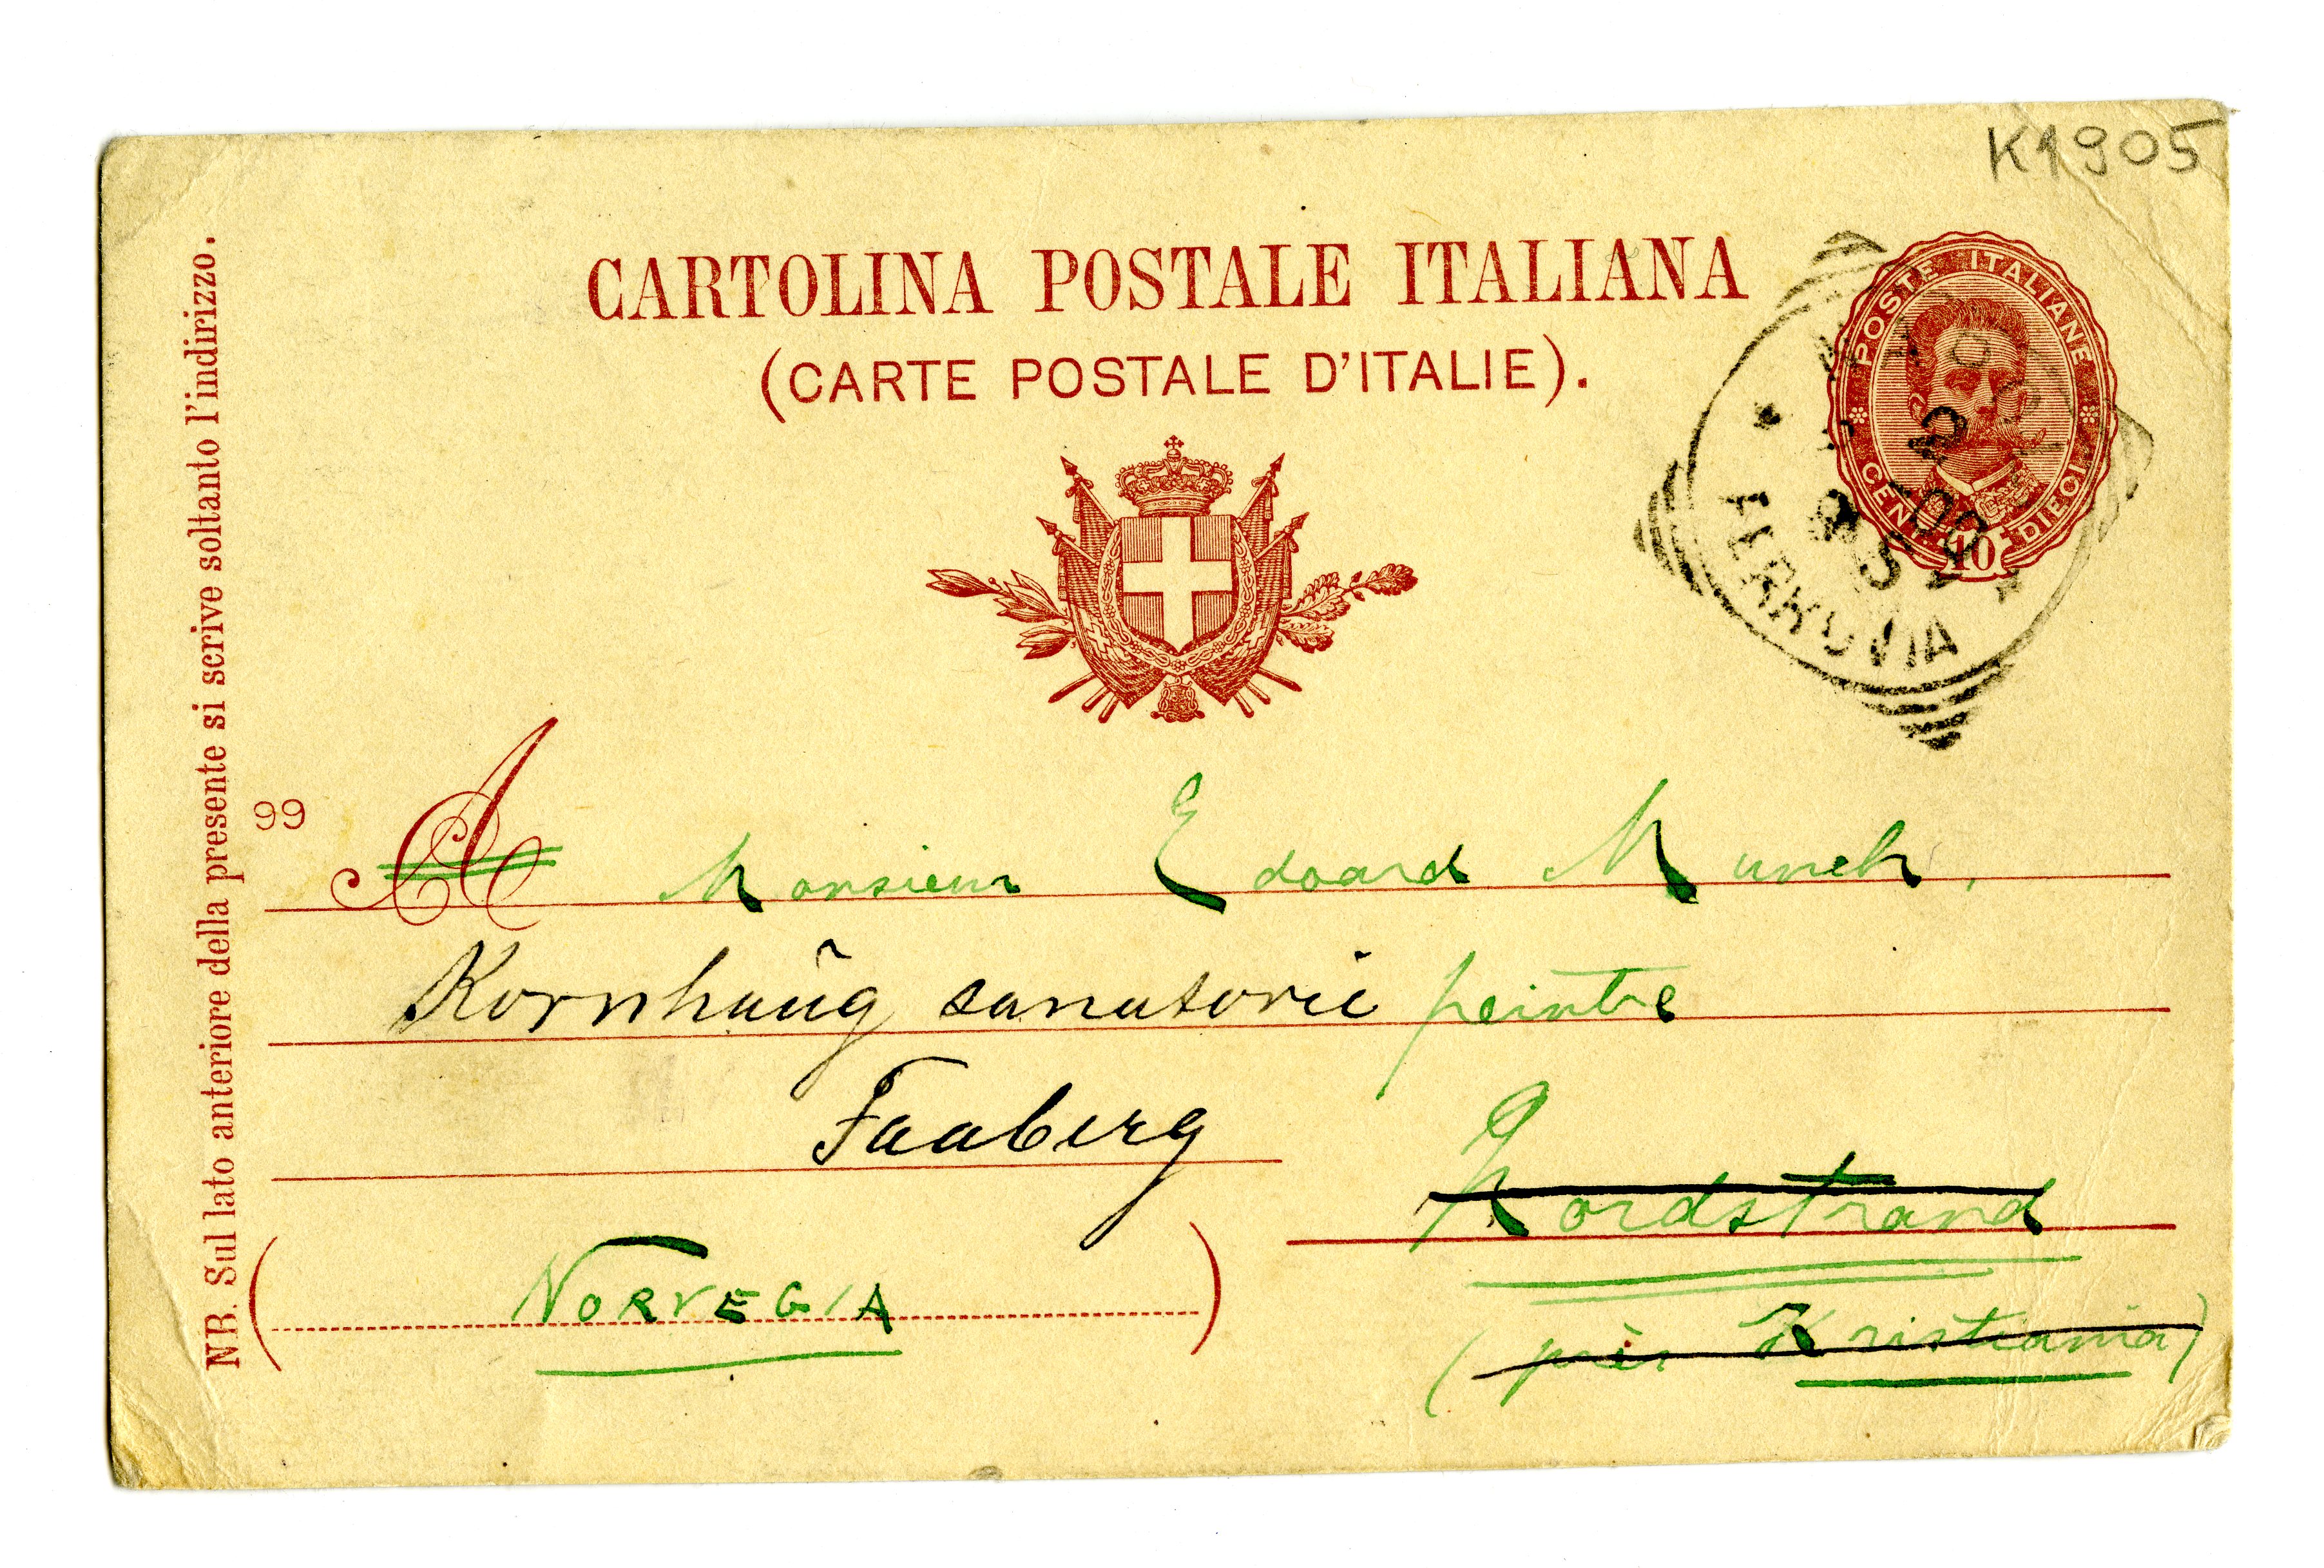 K1905
CARTOLINA POSTALE ITALIANA
(CARTE POSTALE D'ITALIE).
POSTE ITALIANE
CENT. 10 DIECI
2
-00
FERROVIA
NB. Sul lato anteriore della presente si scrive soltanto l'indirizzo.
99
A Monsieur Edoard Munch,
Kornhaug sanatorie peintre
Faaberg
Nordstrand
NORVEGIA
(près Kristiania)